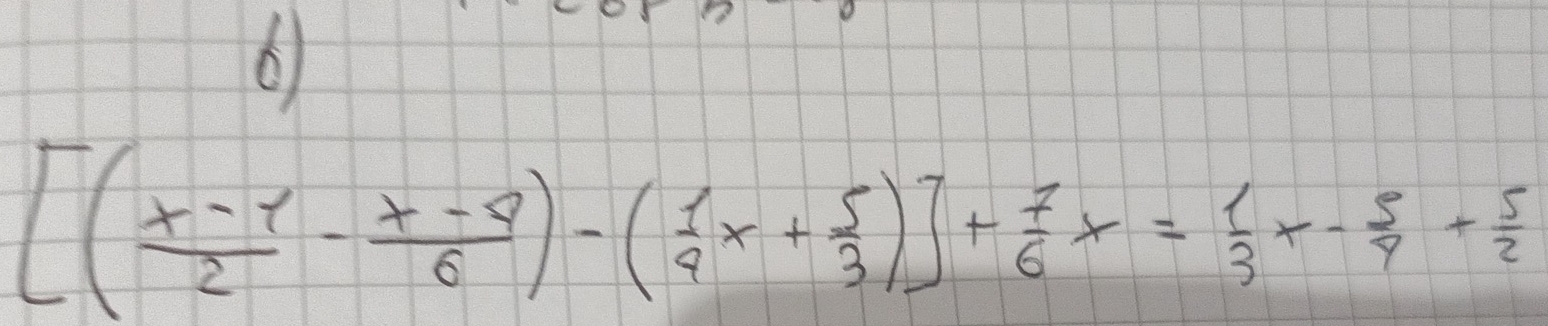 6)
[((x-1)/2 - (x-4)/6) - (1/4 x + 5/3)] + 7/6 x = 1/3 x - 5/4 + 5/2